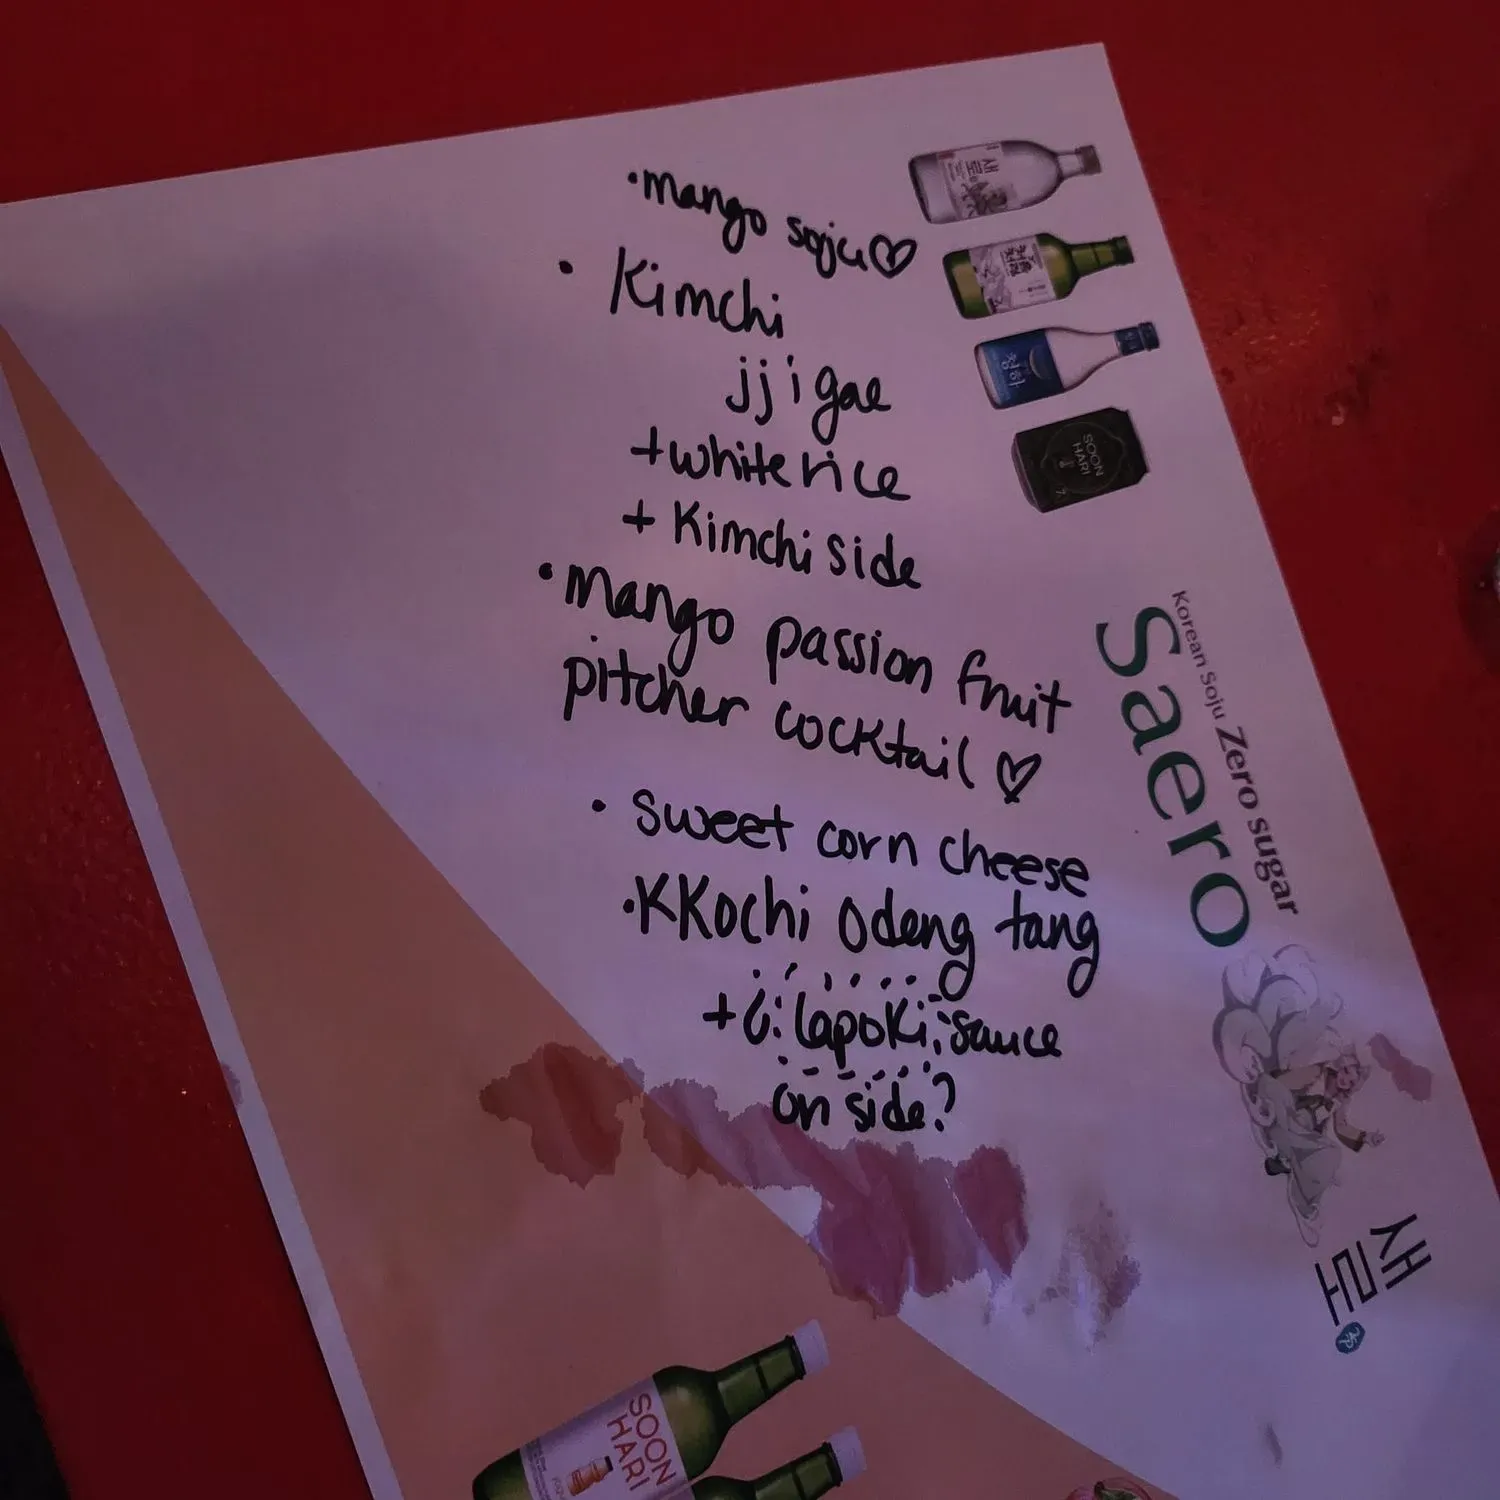 •mango soju♡
• Kimchi
jjigae
+white rice
+ Kimchi side
•Mango passion fruit
pitcher cocktail ♡
• Sweet corn cheese
•KKochi Odeng tang
+ lapoki sauce
on side?
새로
청하
SOON
HARI
Korean Soju Zero sugar
Saero
새로
SOON
HARI